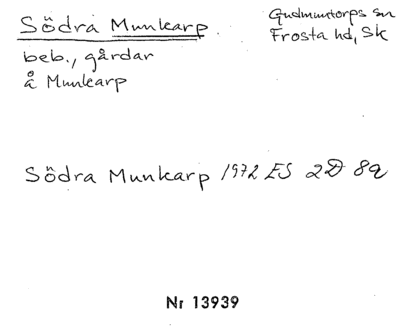 Södra Munkarp
Gudmuntorps sn
Frosta hd, Sk
beb., gårdar
å Munkarp
Södra Munkarp 1972 ES 2D 8a
Nr 13939